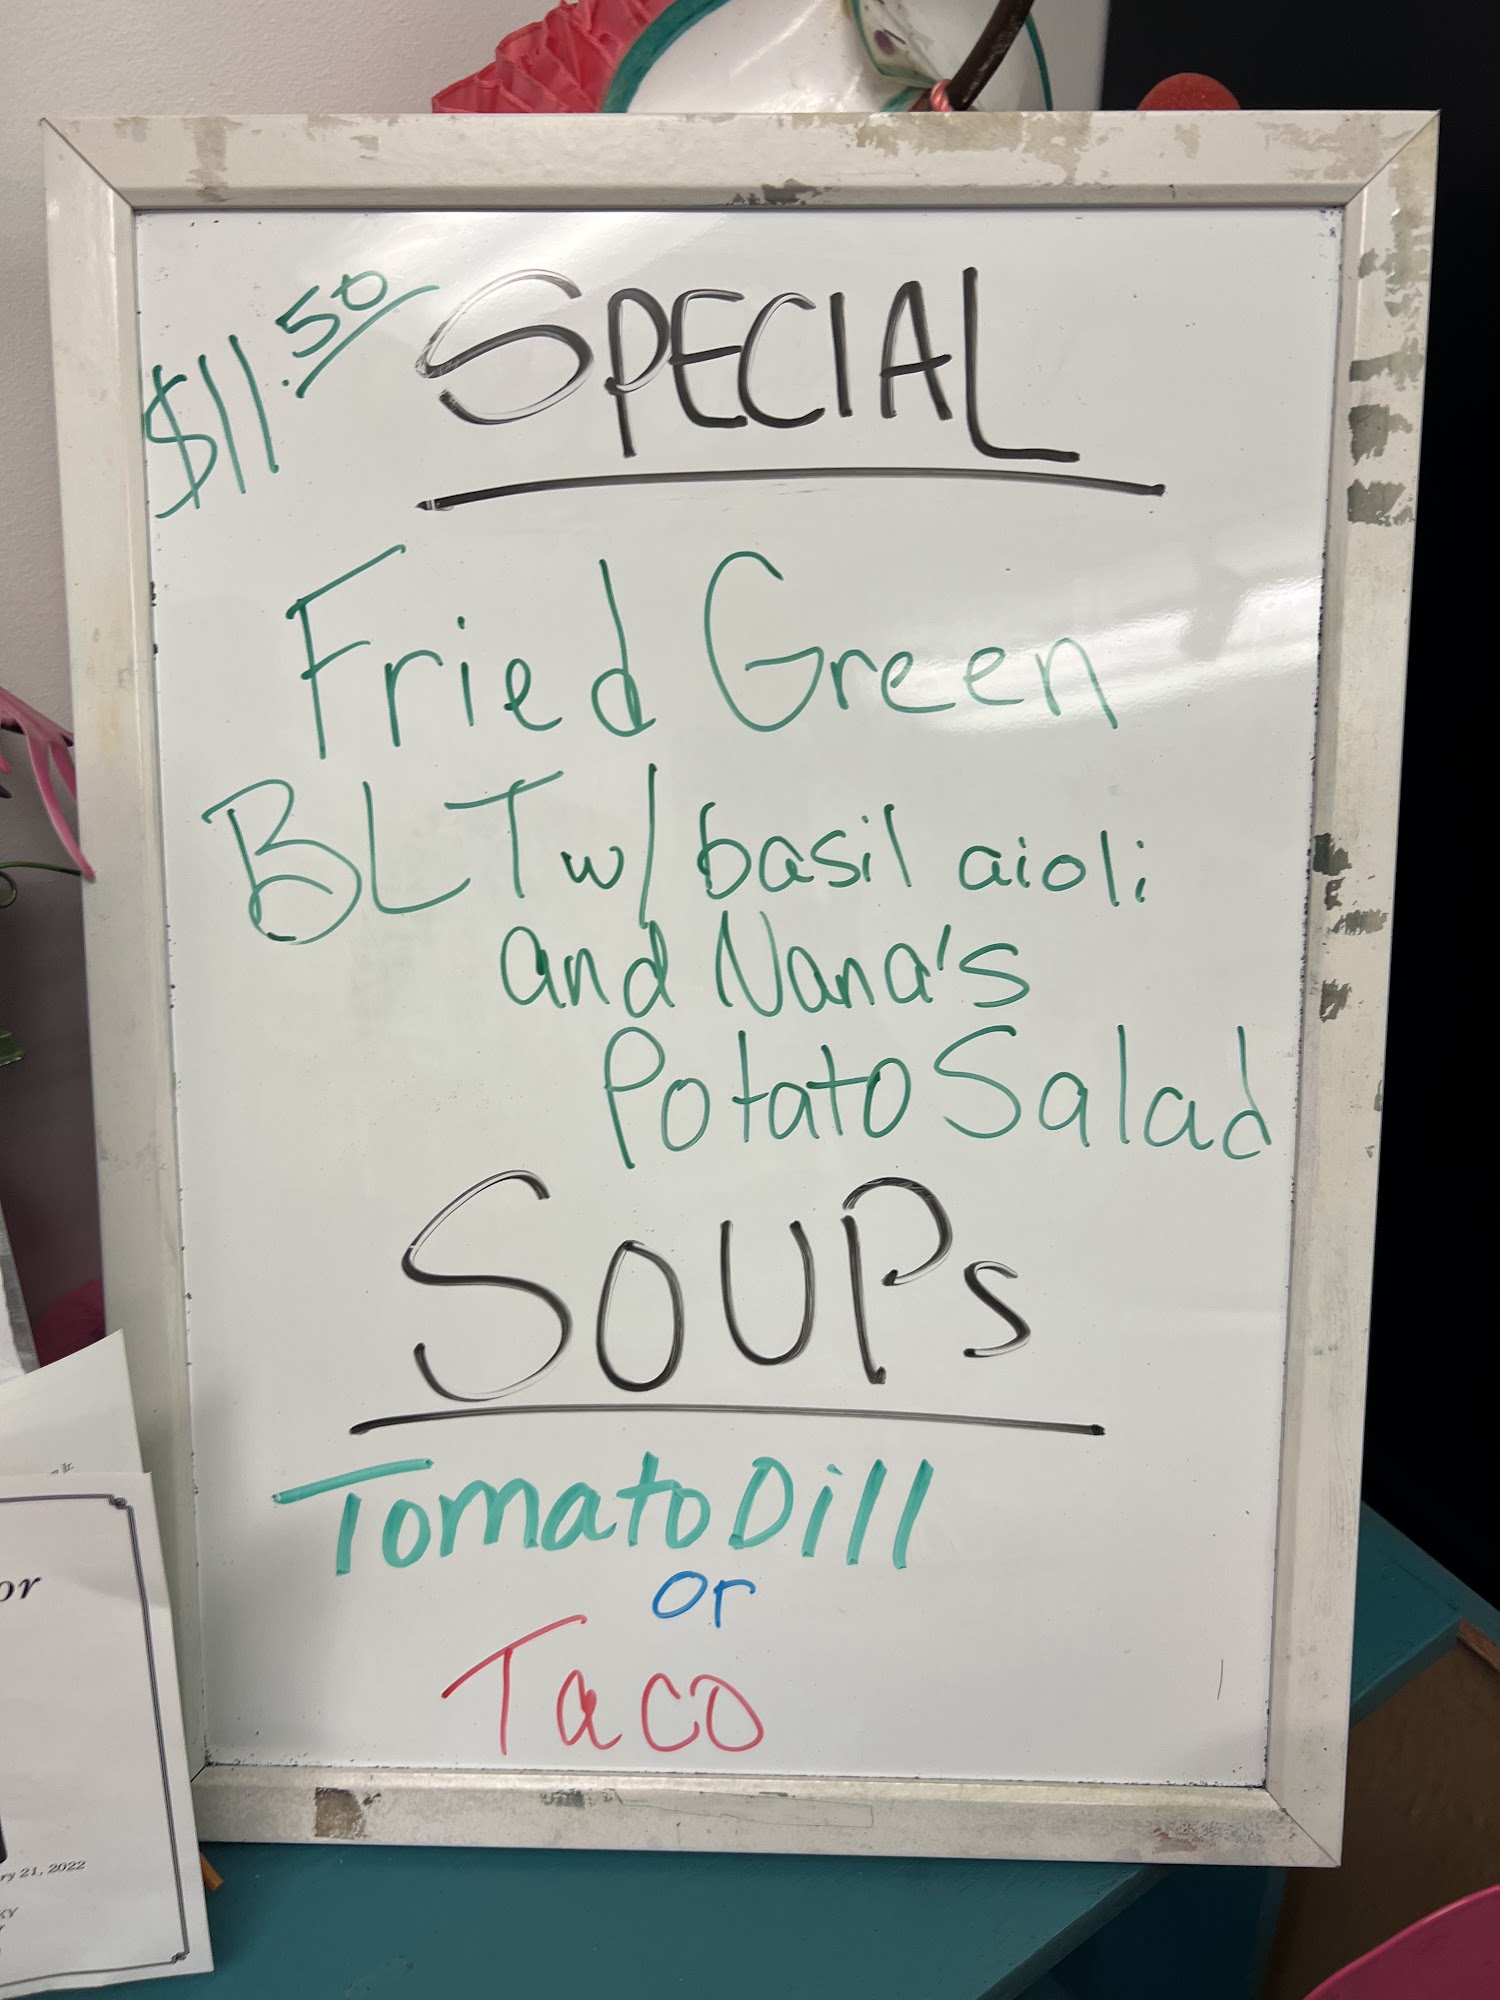 $11.50
SPECIAL
Fried Green
BLT w/ basil aioli
and Nana's
Potato Salad
SOUPs
Tomato Dill
or
Taco
or
21, 2022